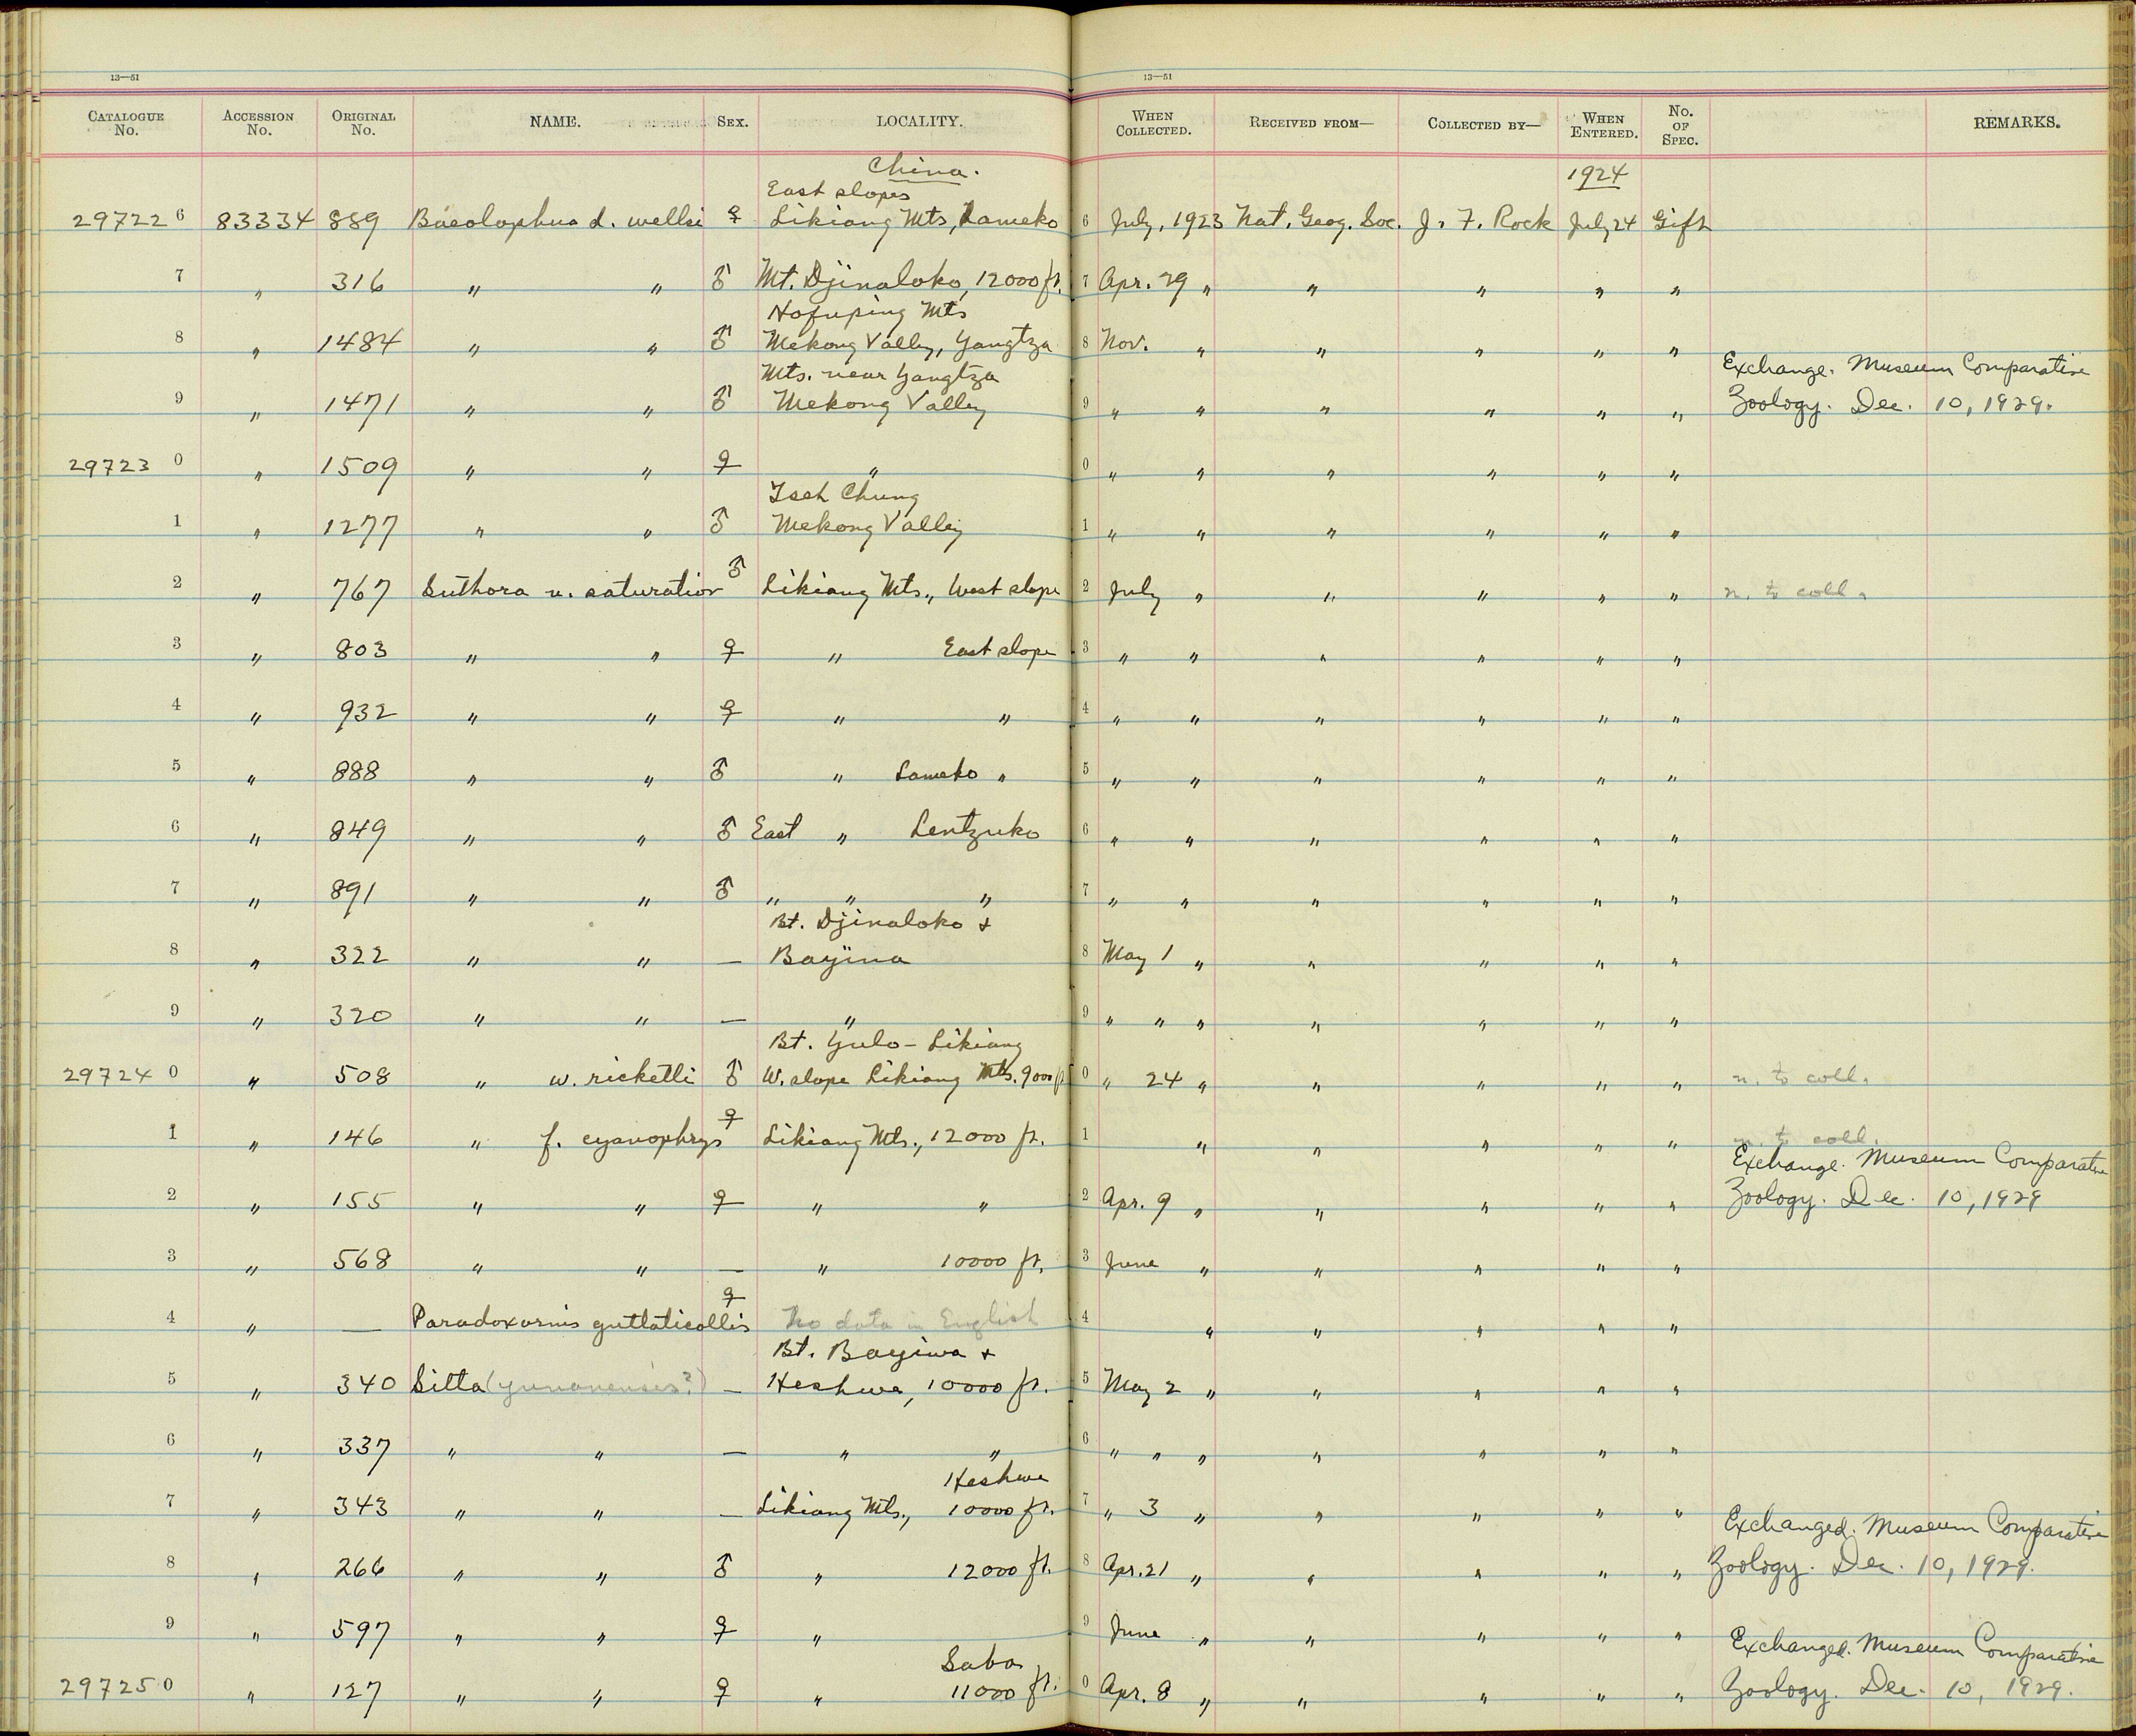 13—51 13—51
CATALOGUE No. ACCESSION No. ORIGINAL No. NAME. SEX. LOCALITY. WHEN COLLECTED. RECEIVED FROM— COLLECTED BY— WHEN ENTERED. No. OF SPEC. REMARKS.
China. 1924
East slopes
29722 6 83334 889 Baeolophus d. wellsi ♀ Likiang Mts, Lameko 6 July, 1923 Nat. Geog. Soc. J. F. Rock July 24 Gift
7 " 316 " " ♂ Mt. Djinaloko, 12000 ft. 7 Apr. 29 " " " " "
Hofuping Mts
8 " 1484 " " ♂ Mekong Valley, Yangtza 8 Nov. " " " " "
Mts. near Yangtza Exchange. Museum Comparative
9 " 1471 " " ♂ Mekong Valley 9 " " " " " " Zoology. Dec. 10, 1929.
29723 0 " 1509 " " ♀ " 0 " " " " " "
Tseh Chung
1 " 1277 " " ♂ Mekong Valley 1 " " " " " "
2 " 767 Suthora u. saturatior ♂ Likiang Mts., West slope 2 July " " " " " n. to coll.
3 " 803 " " ♀ " East slope 3 " " " " " "
4 " 932 " " ♀ " " 4 " " " " " "
5 " 888 " " ♂ " Lameko " 5 " " " " " "
6 " 849 " " ♂ East " Lentzuko 6 " " " " " "
7 " 891 " " ♂ " " " 7 " " " " " "
Bt. Djinaloko +
8 " 322 " " — Bayina 8 May 1 " " " " "
9 " 320 " " — " 9 " " " " " " "
Bt. Yulo - Likiang
29724 0 " 508 " w. ricketti ♂ W. slope Likiang Mts. 9000 ft 0 " 24 " " " " " n. to coll.
1 " 146 " f. cyanophrys ♀ Likiang Mts., 12000 ft. 1 " " " " " n. to coll.
Exchange. Museum Comparative
2 " 155 " " ♀ " " 2 Apr. 9 " " " " " Zoology. Dec. 10, 1929
3 " 568 " " — " 10000 ft. 3 June " " " " "
4 " — Paradoxornis guttaticollis ♀ No data in English 4 " " " " "
Bt. Bayiwa +
5 " 340 Sitta (yunanensis?) — Heshwe, 10000 ft. 5 May 2 " " " " "
6 " 337 " " — " " 6 " " " " " " "
Heshwe
7 " 343 " " — Likiang Mts., 10000 ft. 7 " 3 " " " " "
Exchanged. Museum Comparative
8 " 266 " " ♂ " 12000 ft. 8 Apr. 21 " " " " " Zoology. Dec. 10, 1929.
9 " 597 " " ♀ " 9 June " " " " "
Saba Exchanged. Museum Comparative
29725 0 " 127 " " ♀ " 11000 ft. 0 Apr. 8 " " " " " Zoology. Dec. 10, 1929.